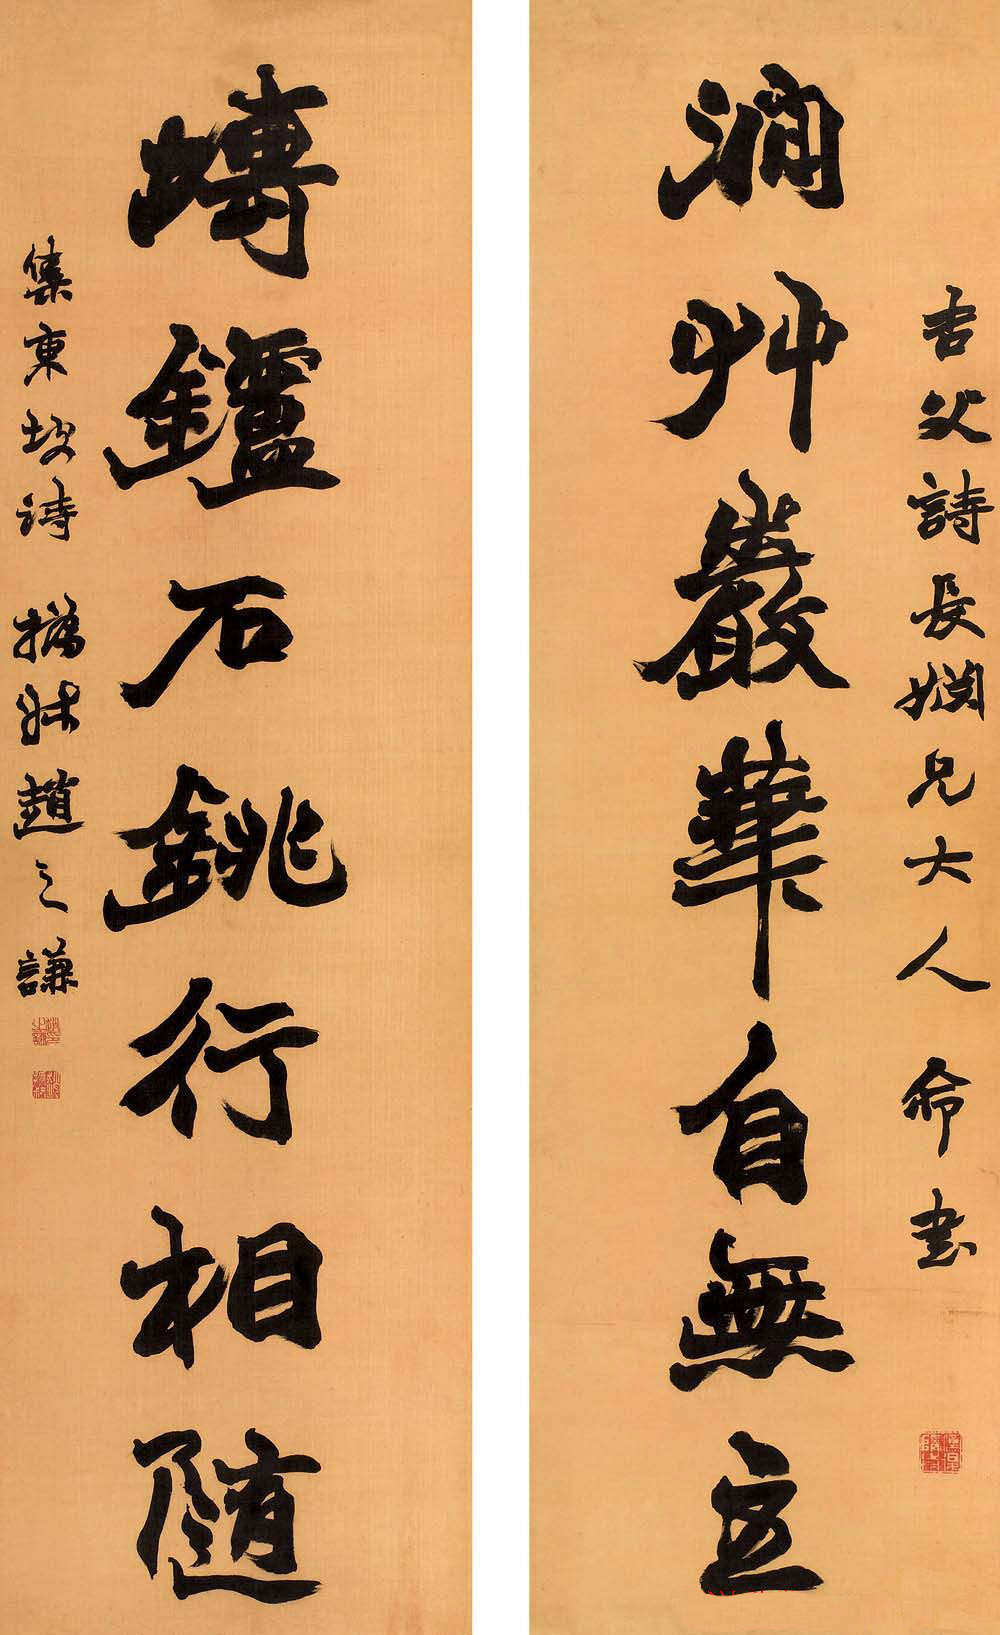 吉父詩長婣兄大人 命書
澗艸巖華自無主
塼鑪石銚行相隨
集東坡詩 撝叔趙之謙